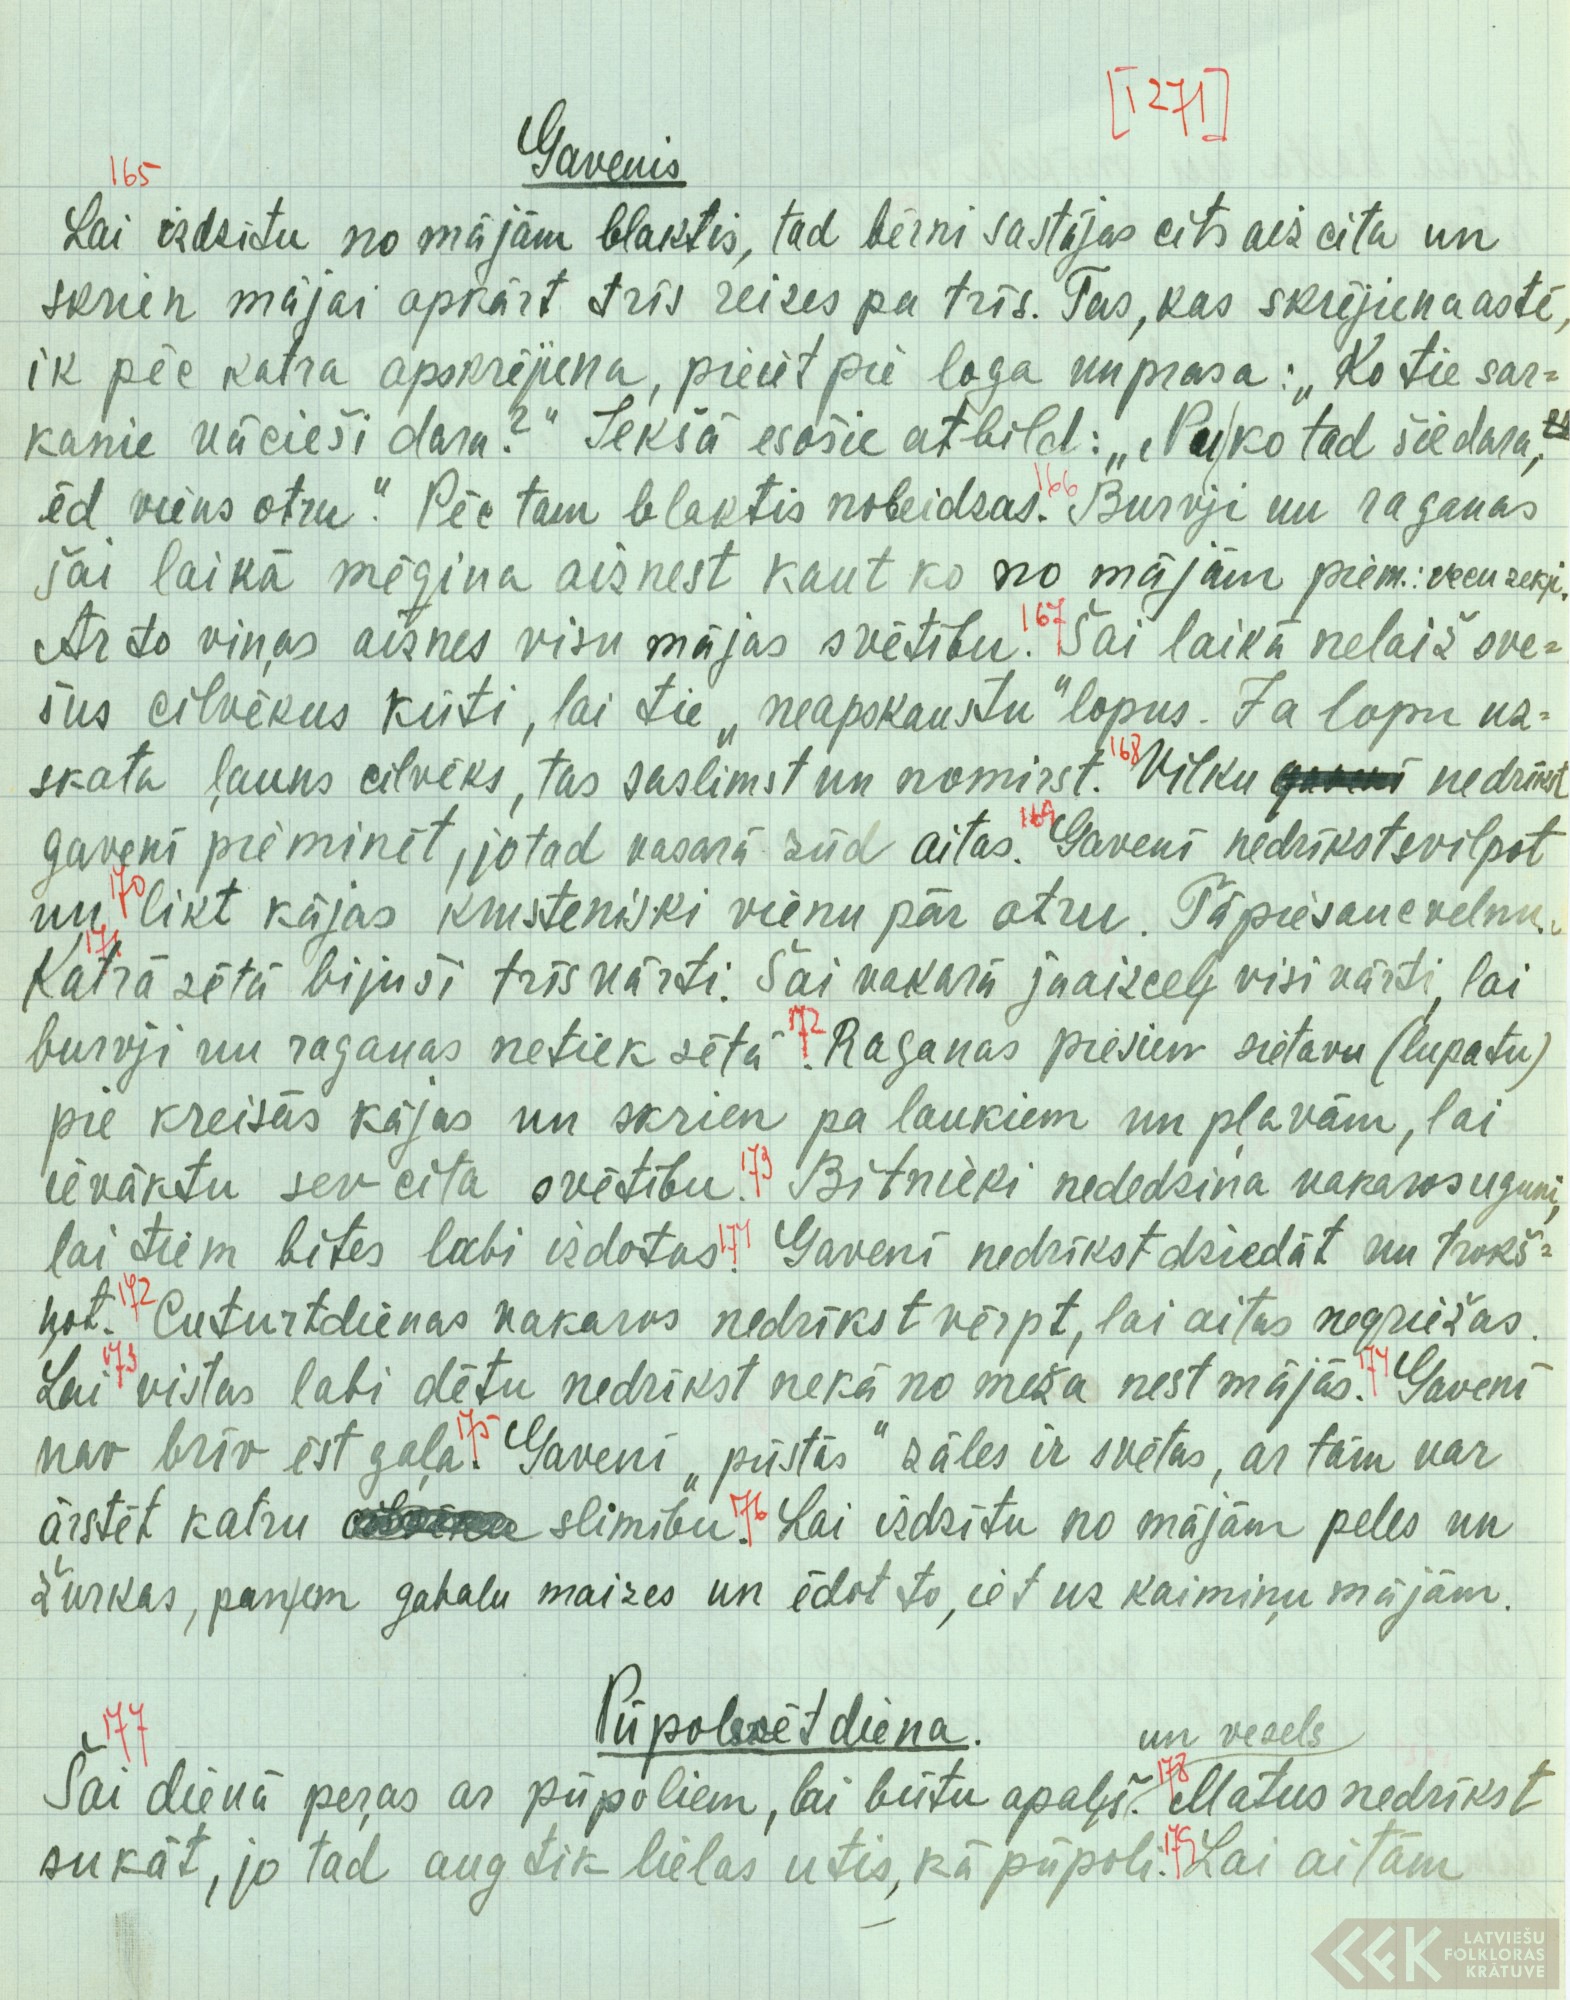 [1271]
Gavenis
165
Lai izdzītu no mājām blaktis, tad bērni sastājas cits aiz cita un
skrien mājai apkārt trīs reizes pa trīs. Tas, kas skrējiena astē,
ik pēc katra apskrējiena, pieiet pie loga un prasa: „Ko tie sar-
kanie vācieši dara?" Iekšā esošie atbild: „Nu, ko tad šie dara,
ēd viens otru." Pēc tam blaktis nobeidzas. 166 Burvji un raganas
šai laikā mēģina aiznest kaut ko no mājām piem.: vecu zeķi.
Ar to viņas aiznes visu mājas svētību. 167 Šai laikā nelaiž sve-
šus cilvēkus kūti, lai tie „neapskaustu" lopus. Ja lopu uz-
skata ļauns cilvēks, tas saslimst un nomirst. 168 Vilku nedrīkst
gavenī pieminēt, jo tad vasarā zūd aitas. 169 Gavenī nedrīkst svilpot
un 170 likt kājas krusteniski vienu pār otru. Tā piesauc velnu.
171 Katrā sētā bijuši trīs vārti. Šai vakarā jāaizceļ visi vārti, lai
burvji un raganas netiek sētā. 172 Raganas piesien sietavu (lupatu)
pie kreisās kājas un skrien pa laukiem un pļavām, lai
ievāktu sev cita svētību. 173 Bitnieki nededzina vakaros uguni,
lai tiem bites labi izdotos. 171 Gavenī nedrīkst dziedāt un trokš-
ņot. 172 Ceturtdienas vakaros nedrīkst vērpt, lai aitas negriežas.
Lai 173 vistas labi dētu nedrīkst nekā no meža nest mājās. 174 Gavenī
nav brīv ēst gaļa. 175 Gavenī „pūstās" zāles ir svētas, ar tām var
ārstēt katru slimību. 176 Lai izdzītu no mājām peles un
žurkas, paņem gabalu maizes un ēdot to, iet uz kaimiņu mājām.
Pūpolsvētdiena.
177 un vesels
Šai dienā peras ar pūpoliem, lai būtu apaļš. 178 Matus nedrīkst
sukāt, jo tad aug tik lielas utis, kā pūpoli. 179 Lai aitām
LATVIEŠU
FOLKLORAS
KRĀTUVE